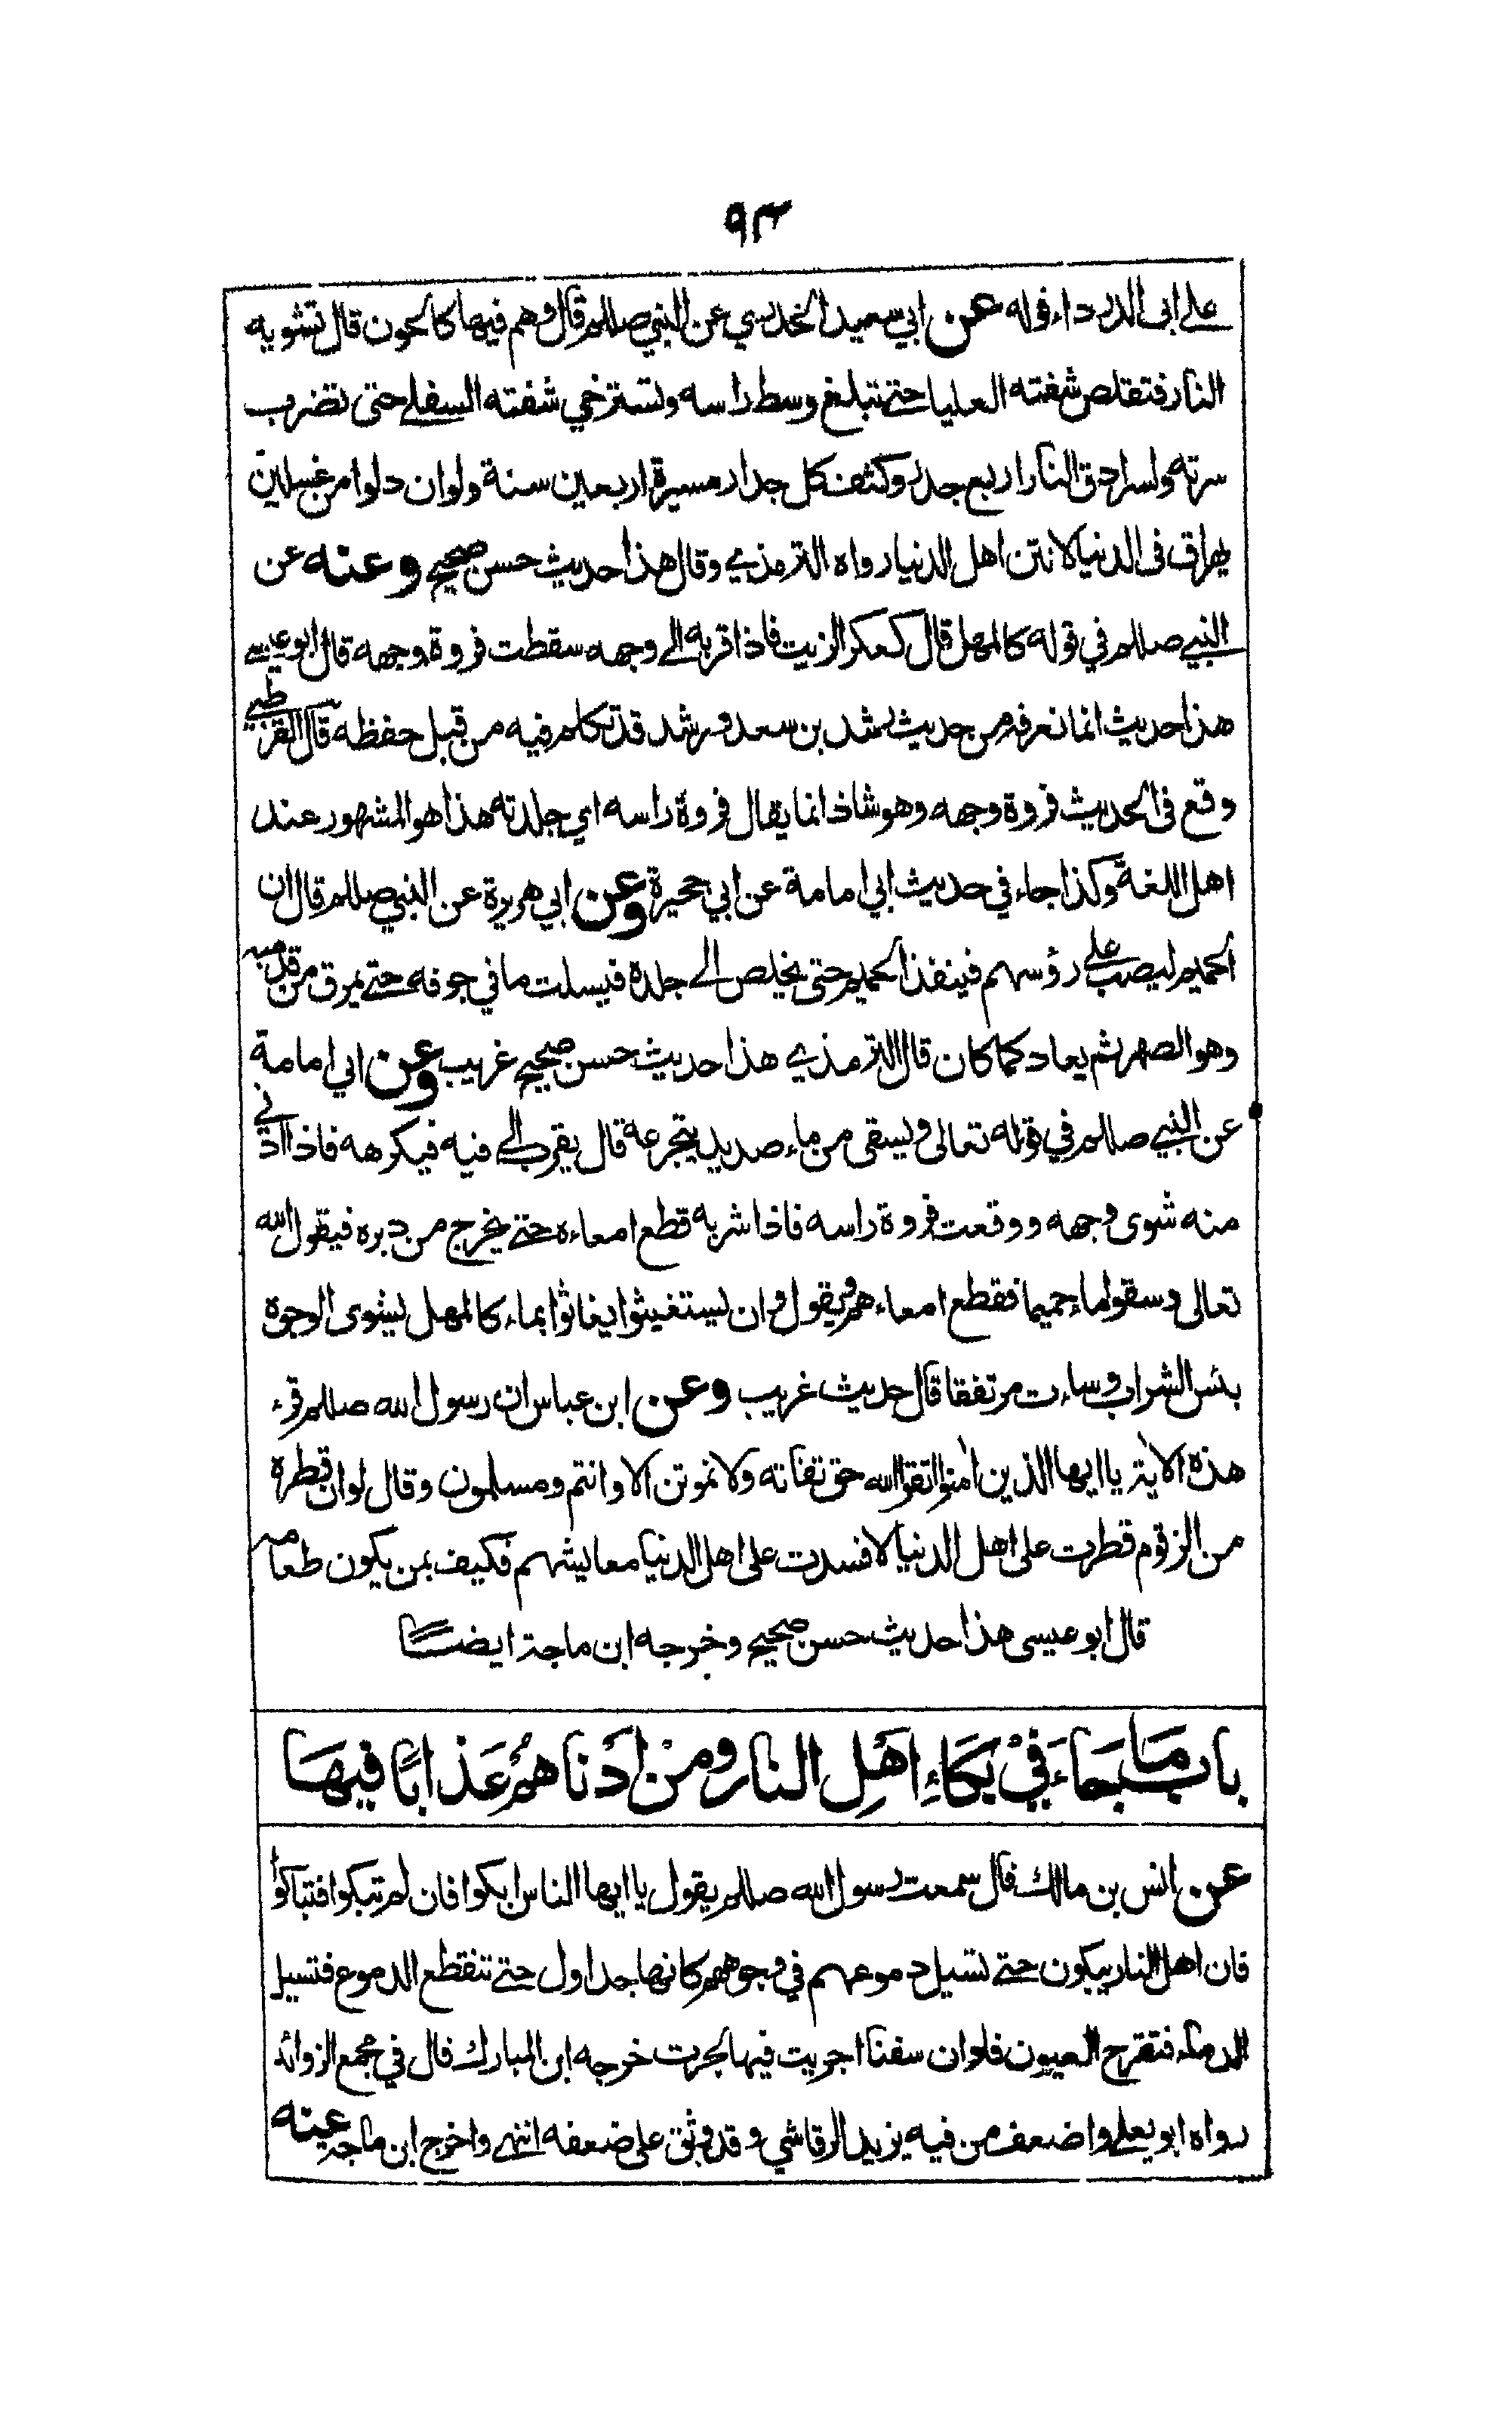 ٩٣
على ابى الدرداء قوله عن ابي سعيد الخدري عن النبي صللم قال وهم فيها كالحون قال تشويه
النار فتقلص شفته العليا حتى تبلغ وسط راسه وتسترخي شفته السفلى حتى تضرب
سرته ولسرادق النار اربع جدر وكثف كل جدار مسيرة اربعين سنة ولو ان دلوا من غسلين
يهراق فى الدنيا لانتن اهل الدنيا رواه الترمذي وقال هذا حديث حسن صحيح وعنه عن
النبي صللم في قوله كالمهل قال كعكر الزيت فاذا قربه الى وجهه سقطت فروة وجهه قال ابو عيسى
هذا حديث انما نعرفه من حديث رشد بن سعد ورشد قد تكلم فيه من قبل حفظه قال القرطبي
وقع فى الحديث فروة وجهه وهو شاذ انما يقال فروة راسه اي جلدته هذا هو المشهور عند
اهل اللغة وكذا جاء في حديث ابي امامة عن ابي حجيرة وعن ابي هريرة عن النبي صللم قال ان
الحميم ليصب على رؤسهم فينفذ الحميم حتى يخلص الى جلدة فيسلت ما في جوفه حتى يمرق من قدميه
وهو الصهر ثم يعاد كما كان قال الترمذي هذا حديث حسن صحيح غريب وعن ابي امامة
عن النبي صللم في قوله تعالى ويسقى من ماء صديد يتجرعه قال يقرب الى فيه فيكرهه فاذا ادني
منه شوى وجهه ووقعت فروة راسه فاذا شربه قطع امعاءه حتى يخرج من دبره فيقول الله
تعالى وسقوا ماء حميما فقطع امعاءهم ويقول وان يستغيثوا يغاثوا بماء كالمهل يشوى الوجوه
بئس الشراب وساءت مرتفقا قال حديث غريب وعن ابن عباس ان رسول الله صللم قرء
هذه الاية يا ايها الذين امنوا اتقوا الله حق تقاته ولا تموتن الا وانتم ومسلمون وقال لو ان قطرة
من الزقوم قطرت على اهل الدنيا لافسدت على اهل الدنيا معايشهم فكيف بمن يكون طعامه
قال ابو عيسى هذا حديث حسن صحيح وخرجه ابن ماجة ايضا
باب ما جاء في بكاء اهل النار ومن ادناهم عذابا فيها
عن انس بن مالك قال سمعت رسول الله صللم يقول يا ايها الناس ابكوا فان لم تبكوا فتباكوا
فان اهل النار يبكون حتى تسيل دموعهم في وجوههم كانها جداول حتى تنقطع الدموع فتسيل
الدماء فتقرح العيون فلو ان سفنا اجريت فيها لجرت خرجه ابن المبارك قال في مجمع الزوائد
رواه ابو يعلى واضعف من فيه يزيد الرقاشي وقد وثق على ضعفه انتهى واخرج ابن ماجة عنه